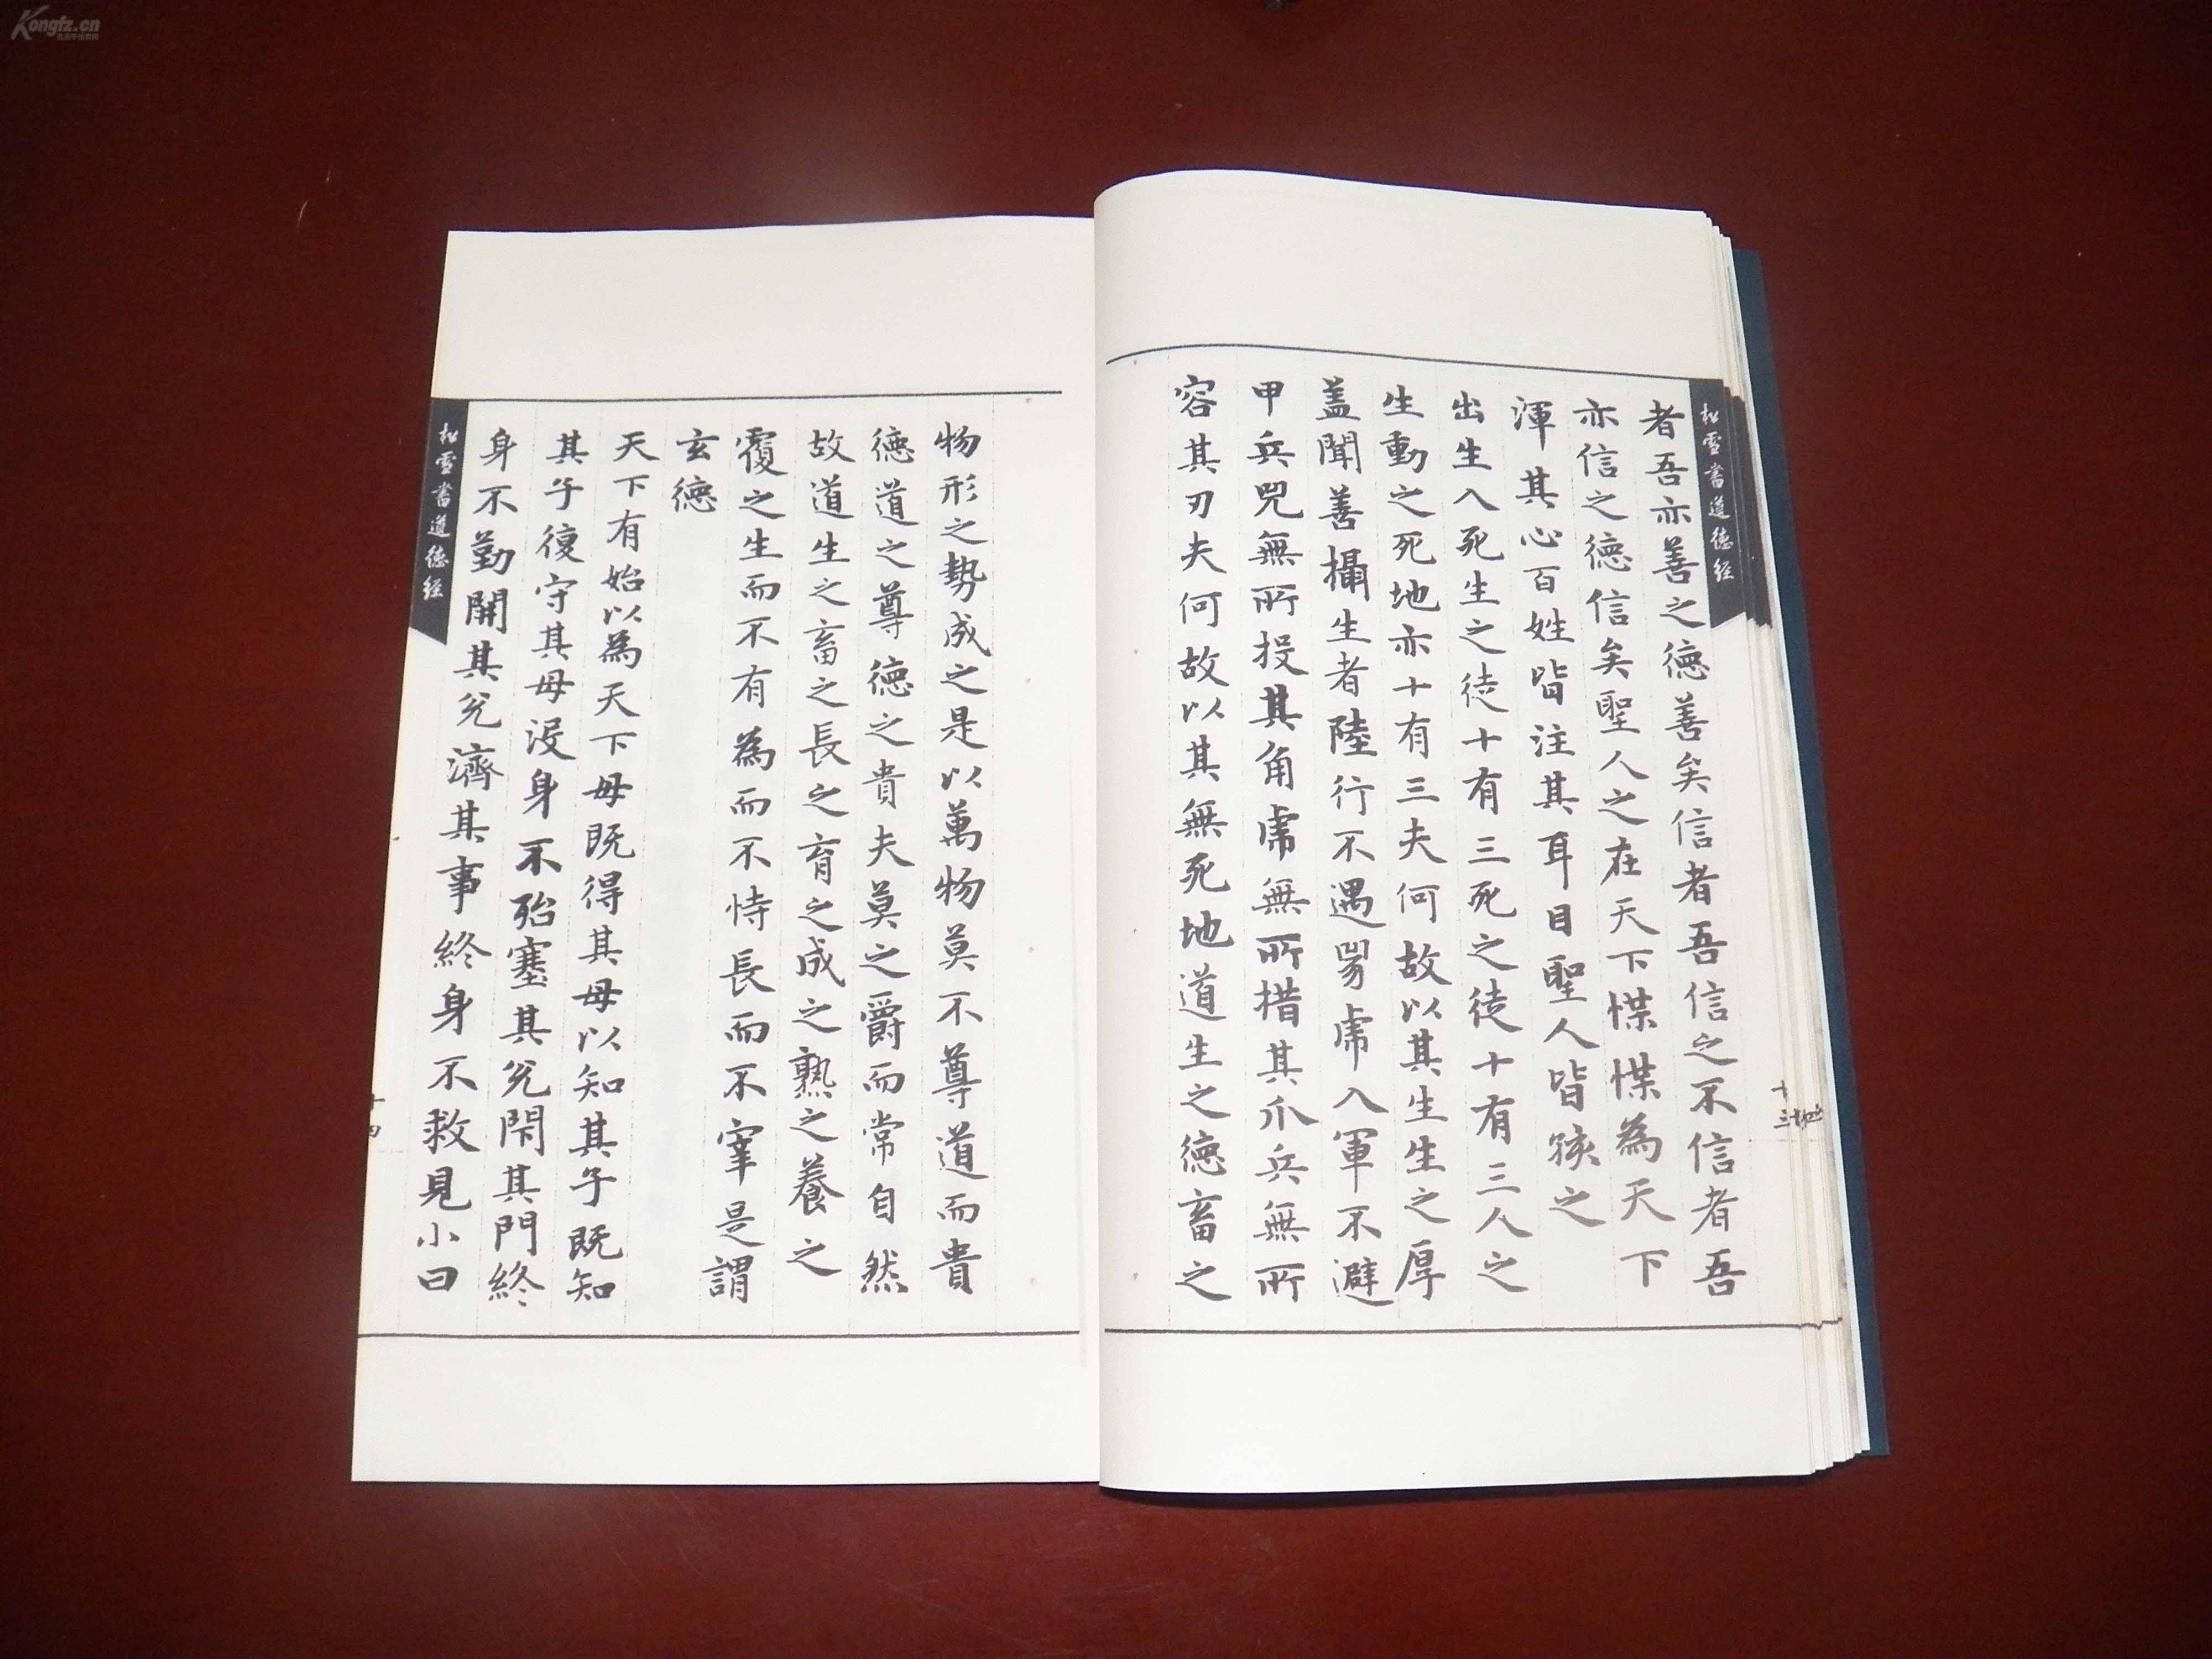 Kongfz.cn
松雪書道德經
者吾亦善之德善矣信者吾信之不信者吾
亦信之德信矣聖人之在天下惵惵為天下
渾其心百姓皆注其耳目聖人皆孩之
出生入死生之徒十有三死之徒十有三人之
生動之死地亦十有三夫何故以其生生之厚
蓋聞善攝生者陸行不遇兕虎入軍不避
甲兵兕無所投其角虎無所措其爪兵無所
容其刃夫何故以其無死地道生之德畜之
十三
物形之勢成之是以萬物莫不尊道而貴
德道之尊德之貴夫莫之爵而常自然
故道生之畜之長之育之成之熟之養之
覆之生而不有為而不恃長而不宰是謂
玄德
天下有始以為天下母既得其母以知其子既知
其子復守其母没身不殆塞其兌閇其門終
身不勤開其兌濟其事終身不救見小曰
松雪書道德經
十四